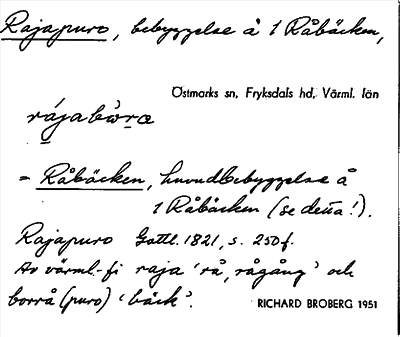 Rajapuro, bebyggelse å 1 Råbäcken,
Östmarks sn, Fryksdals hd, Värml. län
rájabùra
= Råbäcken, huvudbebyggelse å
1 Råbäcken (se denna!).
Rajapuro Gottl. 1821, s. 250 f.
Av värml.-fi raja 'rå, rågång' och
borrå (puro) 'bäck'.
RICHARD BROBERG 1951